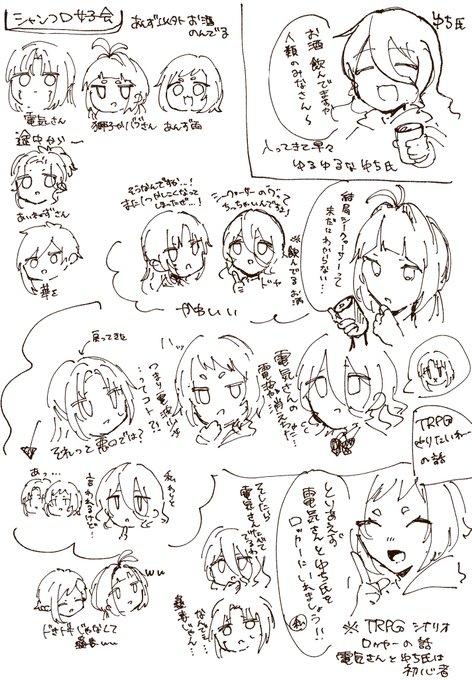 シャンコロ女子会
あんず以外お酒
のんでる
電気さん
獅子がパグさん
あんず雨
途中から〜
あいねずさん
華を
ゆち氏
お酒
飲んでますや
人類の
みなさん〜
入ってきて早々
ゆるゆるなゆち氏
そうなんですか…!
またしつかしこくなって
しまったぜ…!
シークヮーサーのって
ちっちゃいんですよ!
※飲んでるお酒
ドヤ
かわいい
結局シークヮーサーって
未だにわからない…
戻ってきた
それって悪口では?
ハッ
つまり電波少女
…ってコト?!
電気さんの
電波が消えちゃった…
TRPG
やりたいねー
の話
あっ…
私わりと
言われるけど…
ww
ドをすじゃなくて
そしたら
電気さんでるわ
なんでも
とりあえず
電気さんとゆち氏を
ロッカーにいれましょう!!
私
※TRPGシナリオ
ロッカーの話
電気さんとゆち氏は
初心者